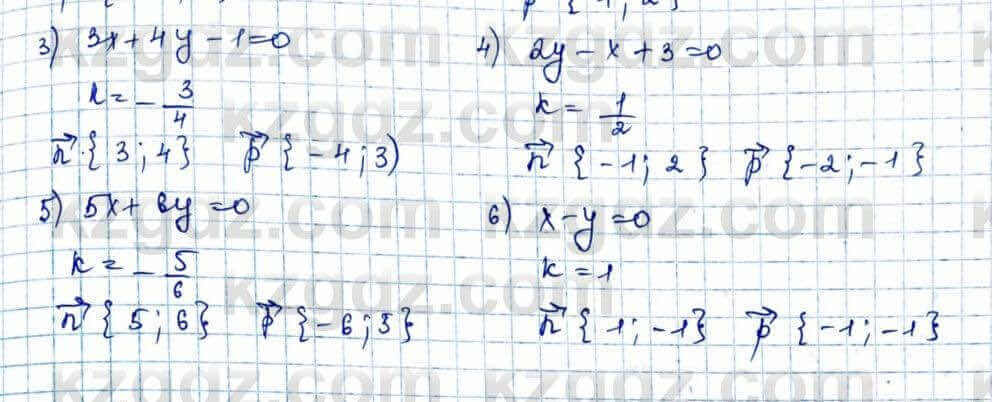 3) 3x + 4y - 1 = 0
k = - 3/4
n⃗ {3; 4} p⃗ {-4; 3)
4) 2y - x + 3 = 0
k = 1/2
n⃗ {-1; 2} p⃗ {-2; -1}
5) 5x + 6y = 0
k = - 5/6
n⃗ {5; 6} p⃗ {-6; 5}
6) x - y = 0
k = 1
n⃗ {1; -1} p⃗ {-1; -1}
kzgdz.com